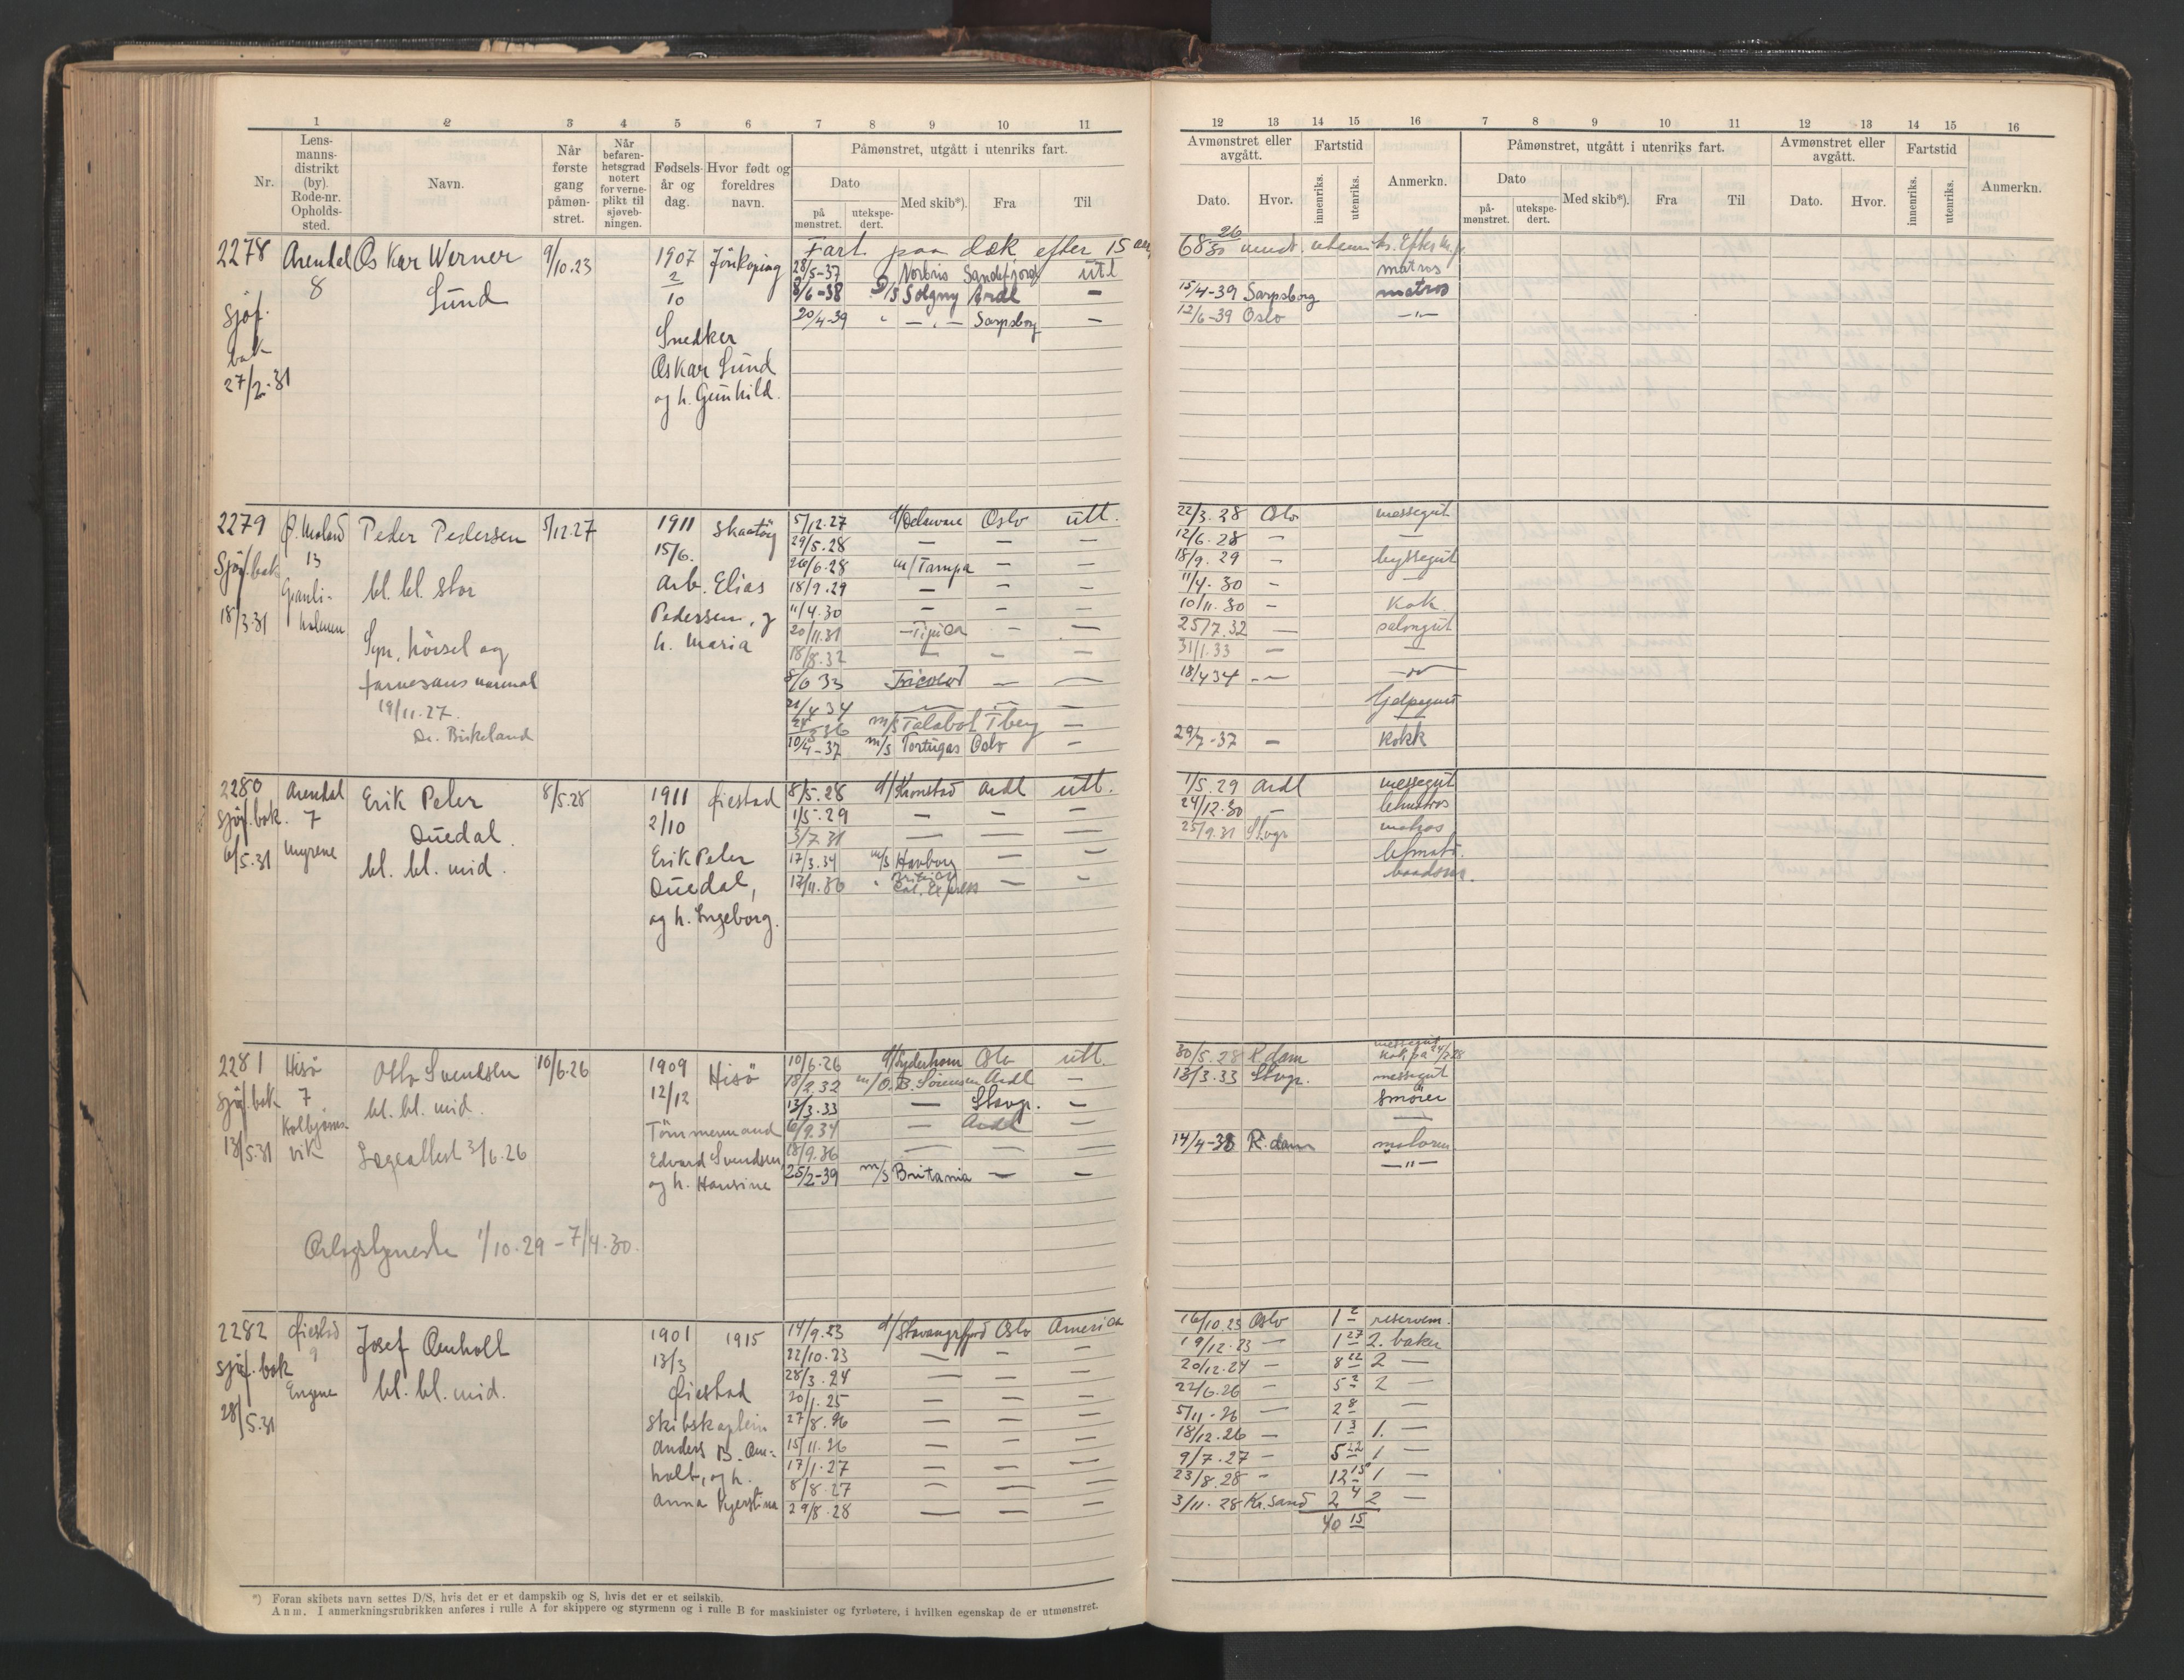 1 2 3 4 5 6 7 8 9 10 11
Nr.
Lens-
manns-
distrikt
(by).
Rode-nr.
Opholds-
sted.
Navn.
Når
første
gang
påmøn-
stret.
Når
befaren-
hetsgrad
notert
for verne-
plikt til
sjøveb-
ningen.
Fødsels-
år og
dag.
Hvor født og
foreldres
navn.
Påmønstret, utgått i utenriks fart.
Dato
på
mønstret.
utekspe-
dert.
Med skib*).
Fra
Til
12 13 14 15 16 7 8 9 10 11 12 13 14 15 16
Avmønstret eller
avgått.
Dato. Hvor.
Fartstid
innenriks.
utenriks.
Anmerkn.
Påmønstret, utgått i utenriks fart.
Dato
på-
mønstret.
utekspe-
dert.
Med skib*).
Fra
Til
Avmønstret eller
avgått.
Dato. Hvor.
Fartstid
innenriks.
utenriks.
Anmerkn.
2278 Arendal Oskar Werner 9/10.23 1907 Jönköping Fart paa dæk efter 15 aar
8 Sund 2/10
sjöf.
bok
27/2.31
Snedker
Oskar Sund
og h. Gunhild.
28/5-37 Norbris Sandefjord utl matros
8/6-38 D/S Solgny Ardl — 15/4-39 Sarpsborg matros
20/4-39 " — " — Sarpsborg — 12/6-39 Oslo — " —
2279 Ø. Moland Peder Pedersen 5/12.27 1911 Skaatöy
Sjöf. bok 13 bl. bl. stor 15/6.
18/3.31
Arb. Elias
Pedersen, og
h. Maria
Syn, hörsel og
farvesans normal
19/11.27.
Dr. Birkeland
5/12.27 d/Delaware Oslo utl. 22/3.28 Oslo messegut
29/5.28 — — — 12/6.28 — —
26/6.28 m/Tampa — — 18/9.29 — byssegut
18/9.29 — — 11/4.30 — —
11/4.30 — — — 10/11.30 — Kok
20/11.31 — — 25/7.32 — salongut
18/8.32 — — — 31/1.33 — —
8/6 33 Tricolor — — 18/4 34 — —
21/4 34 — — —
m/s Talabot Tberg —
10/4-37 m/s Tortugas Oslo — 29/7-37 — Kokk
2280 Arendal Erik Peter 8/5.28 1911 Øiestad
sjöf. bok. 7 Duedal. 2/10
6/5.31 Myrene bl. bl. mid.
Erik Peter
Duedal,
og h. Ingeborg.
8/5.28 d/Kronstad Ardl utl. 1/5.29 Ardl messegut
1/5.29 — — — 24/12.30 —
3/7 31 — — — 25/9.31 Stvgr matros
17/3.34 m/s Havborg — —
17/11.36 " Cal. Express — —
2281 Hisö Oslo Svendsen 10/6.26 1909 Hisö
sjöf. bok 7 bl. bl. mid. 12/12
13/5.31 Kolbjørns-
vik Lægeattest 3/6.26
Tömmermand
Edvard Svendsen
og h. Hansine
10/6.26 Oslo utl. 30/5.28 R.dam messegut
18/2.32 m/O.B. Sörensen Ardl — 13/3.33 Stvgr. messegut
13/3.33 — Stavgr. — Smörer
6/9.34 — Ardl — —
18/9.36 — — — 14/4-38 R.dam motorm
25/2-39 m/S Britania — — — " —
1/10.29 – 7/4.30.
2282 Øiestad Josef Omholt 1901 1915
sjöf. bok 9 bl. bl. mid. 13/3
28/5.31 Engene
Øiestad
Skibskaptein
Anders B. Om-
holt, og h.
Anna Kjerstina
14/9.23 d/Stavangrfjord Oslo America 16/10.23 Oslo 1 2 reservem.
22/10.23 — — — 19/12.23 — 1 27 2. baker
28/3.24 — — — 20/12.24 — 8 22 2 —
20/1.25 — — — 22/6.26 — 5 2 2 —
27/8.26 — — — 5/11.26 — 2 8 —
15/11.26 — — — 18/12.26 — 1 3 1. —
17/1.27 — — — 9/7.27 — 5 22 1 —
8/8.27 — — — 23/8.28 — 12 15 1 —
29/8.28 — — — 3/11.28 Kr.sand 2 4 2 —
40 15
*) Foran skibets navn settes D/S, hvis det er et dampskib og S, hvis det er et seilskib.
Anm. I anmerkningsrubrikken anføres i rulle A for skippere og styrmenn og i rulle B for maskinister og fyrbøtere, i hvilken egenskap de er utmønstret.